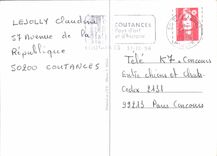 LEJOLLY Claudine
57 Avenue de la
République
50200 COUTANCES
COUTANCES
Télé K7 - Concours
Entre chiens et chats
Cedex 2131
99213 Paris Concours